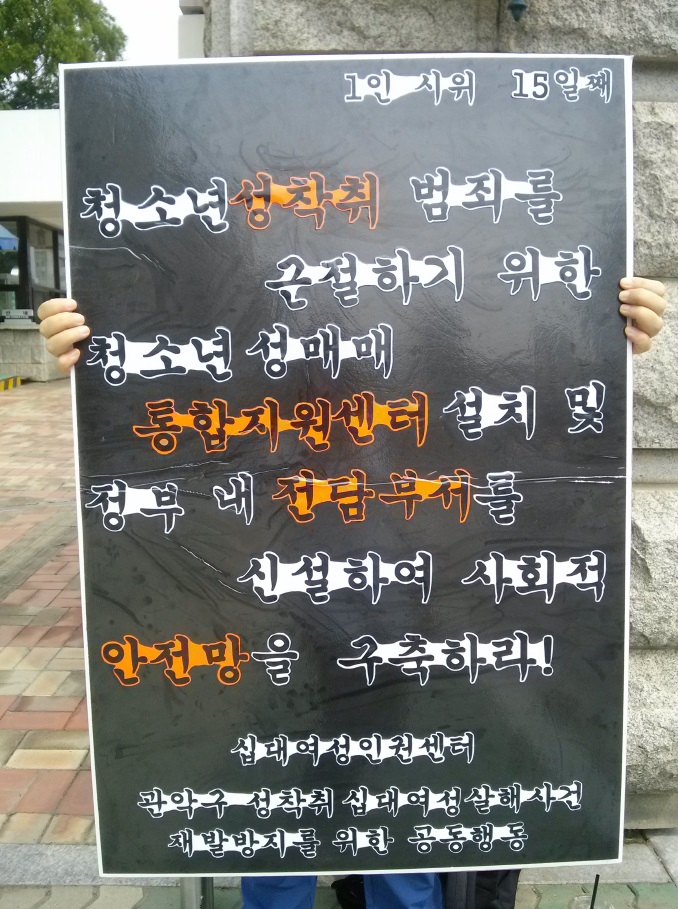 1인 시위 15일째
청소년성착취 범죄를
근절하기 위한
청소년 성매매
통합지원센터 설치 및
정부 내 전담부서를
신설하여 사회적
안전망을 구축하라!
십대여성인권센터
관악구 성착취 십대여성살해사건
재발방지를 위한 공동행동